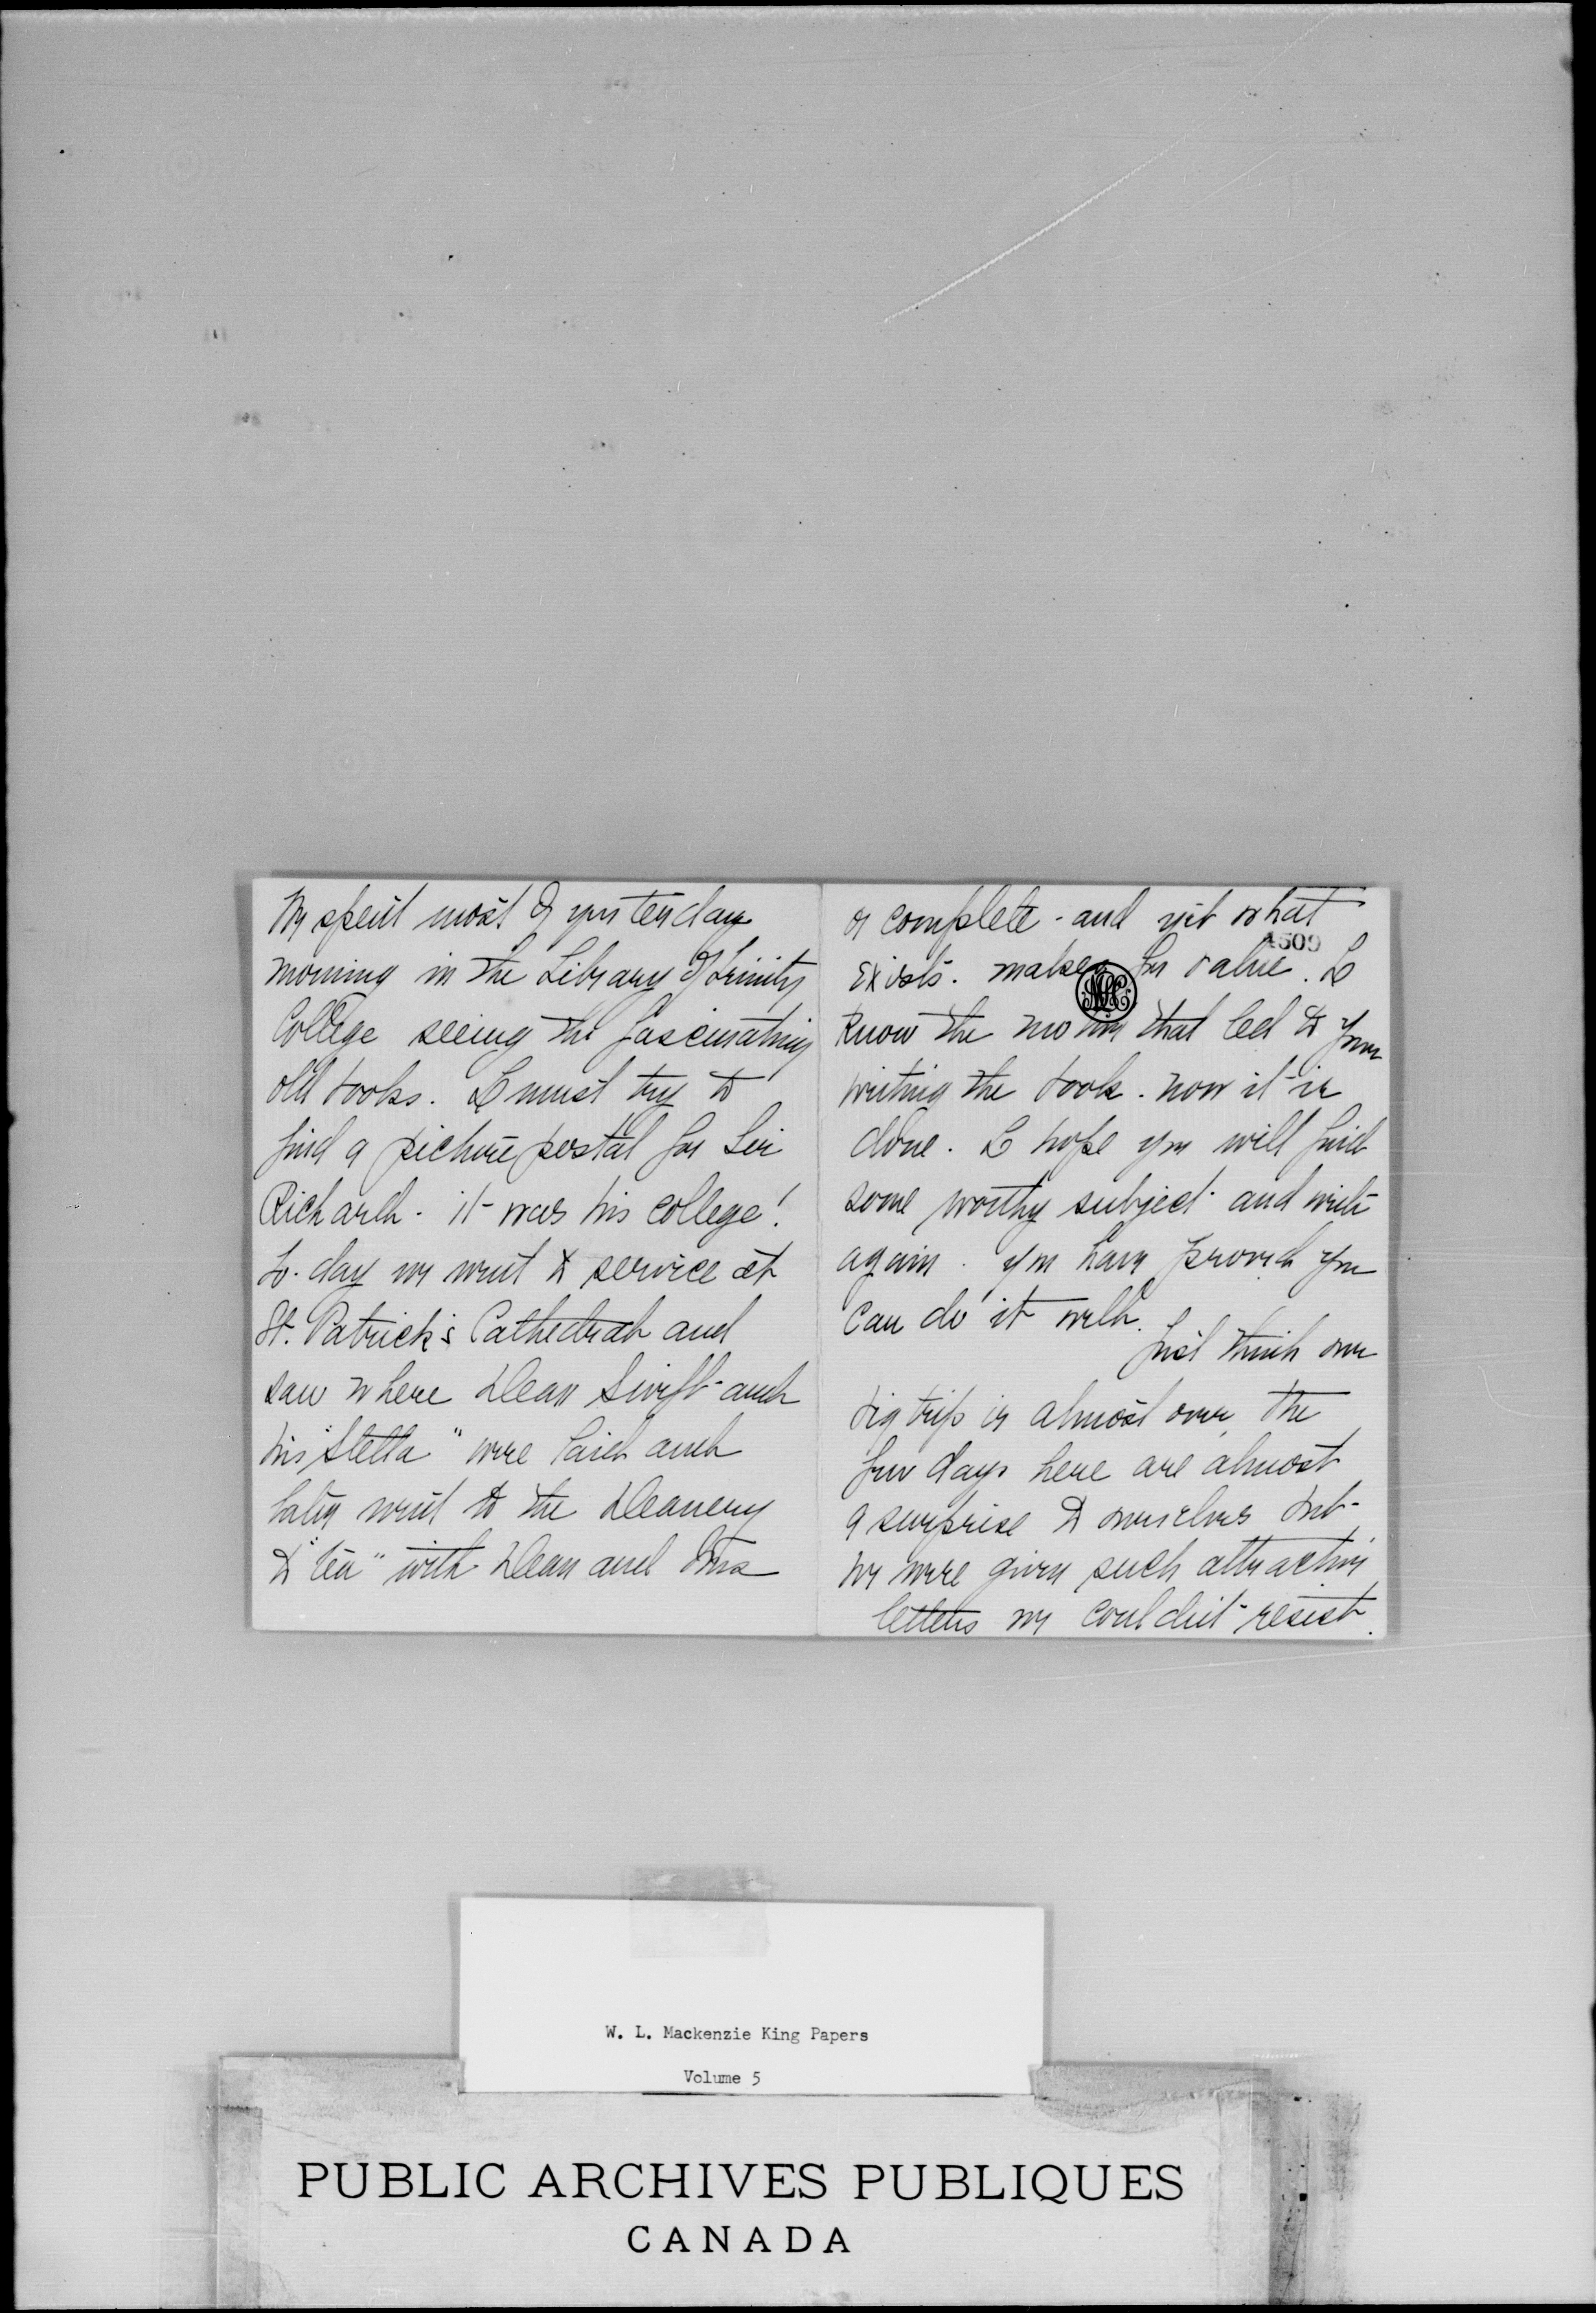 We spent most of yesterday
morning in the Library of Trinity
College seeing the fascinating
old books. I must try to
find a picture postal for Sir
Richard - it was his college!
To-day we went to service at
St. Patrick's Cathedral and
saw where Dean Swift and
his "Stella" were laid and
later went to the Deanery
to "tea" with Dean and Mrs
or complete - and yet what
exists. makes for value. I
know the motive that led to your
writing the book. now it is
done. I hope you will find
some worthy subject and write
again. you have proved you
can do it well.
Just think our
big trip is almost over, the
few days here are almost
a surprise to ourselves but
we were given such attractive
letters we couldn't resist.
4509
W. L. Mackenzie King Papers
Volume 5
PUBLIC ARCHIVES PUBLIQUES
CANADA